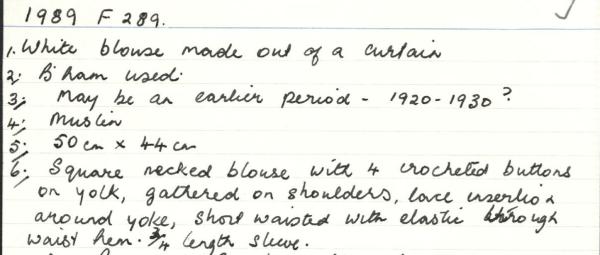 1989 F 289.
1. White blouse made out of a curtain
2. B'ham used.
3. May be an earlier period - 1920-1930?
4. Muslin
5. 50 cm x 44 cm
6. Square necked blouse with 4 crocheted buttons
on yolk, gathered on shoulders, lace insertion
around yoke, short waisted with elastic through
waist hem. 3/4 length sleeve.